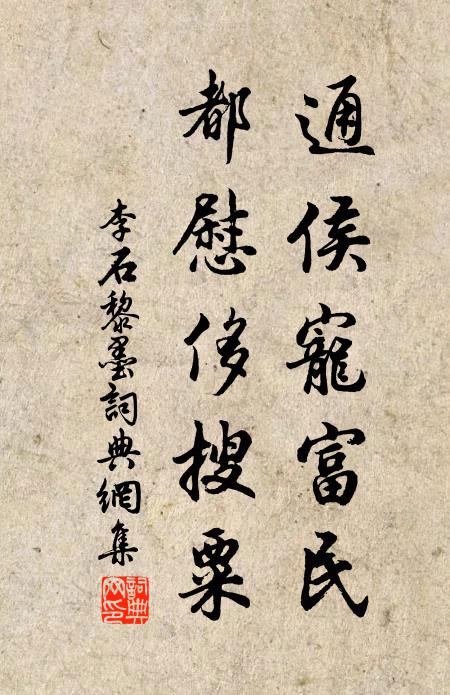 通侯寵富民
都慰侈搜粟
李石黎墨詞典網集
詞典网印